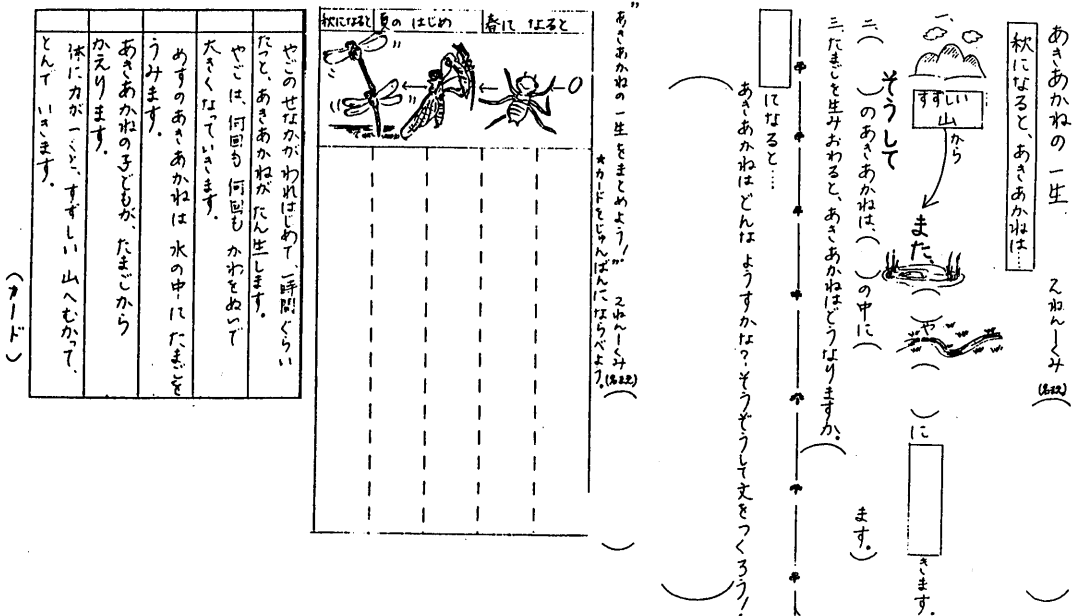 あきあかねの 一生 二ねん一くみ (名まえ) ( )
秋になると、あきあかねは…
一、
すずしい山
から
また、
( )
や
( )
に
きます。
そうして
二、( )のあきあかねは、( )の中に( )ます。
三、たまごを生みおわると、あきあかねはどうなりますか。
( )
になると……
あきあかねはどんな ようすかな?そうぞうして文をつくろう!
( )
"あきあかねの一生をまとめよう!" 二ねん一くみ (名まえ) ( )
*カードをじゅんばんにならべよう。
春に なると
夏の はじめ
秋になると
やごのせなかがわれはじめて、一時間ぐらい
たつと、あきあかねが たん生します。
やごは、何回も 何回も かわをぬいで
大きくなっていきます。
めすのあきあかねは 水の中に たまごを
うみます。
あきあかねの子どもが、たまごから
かえります。
体に力が つくと、すずしい 山へむかって、
とんで いきます。
(カード)